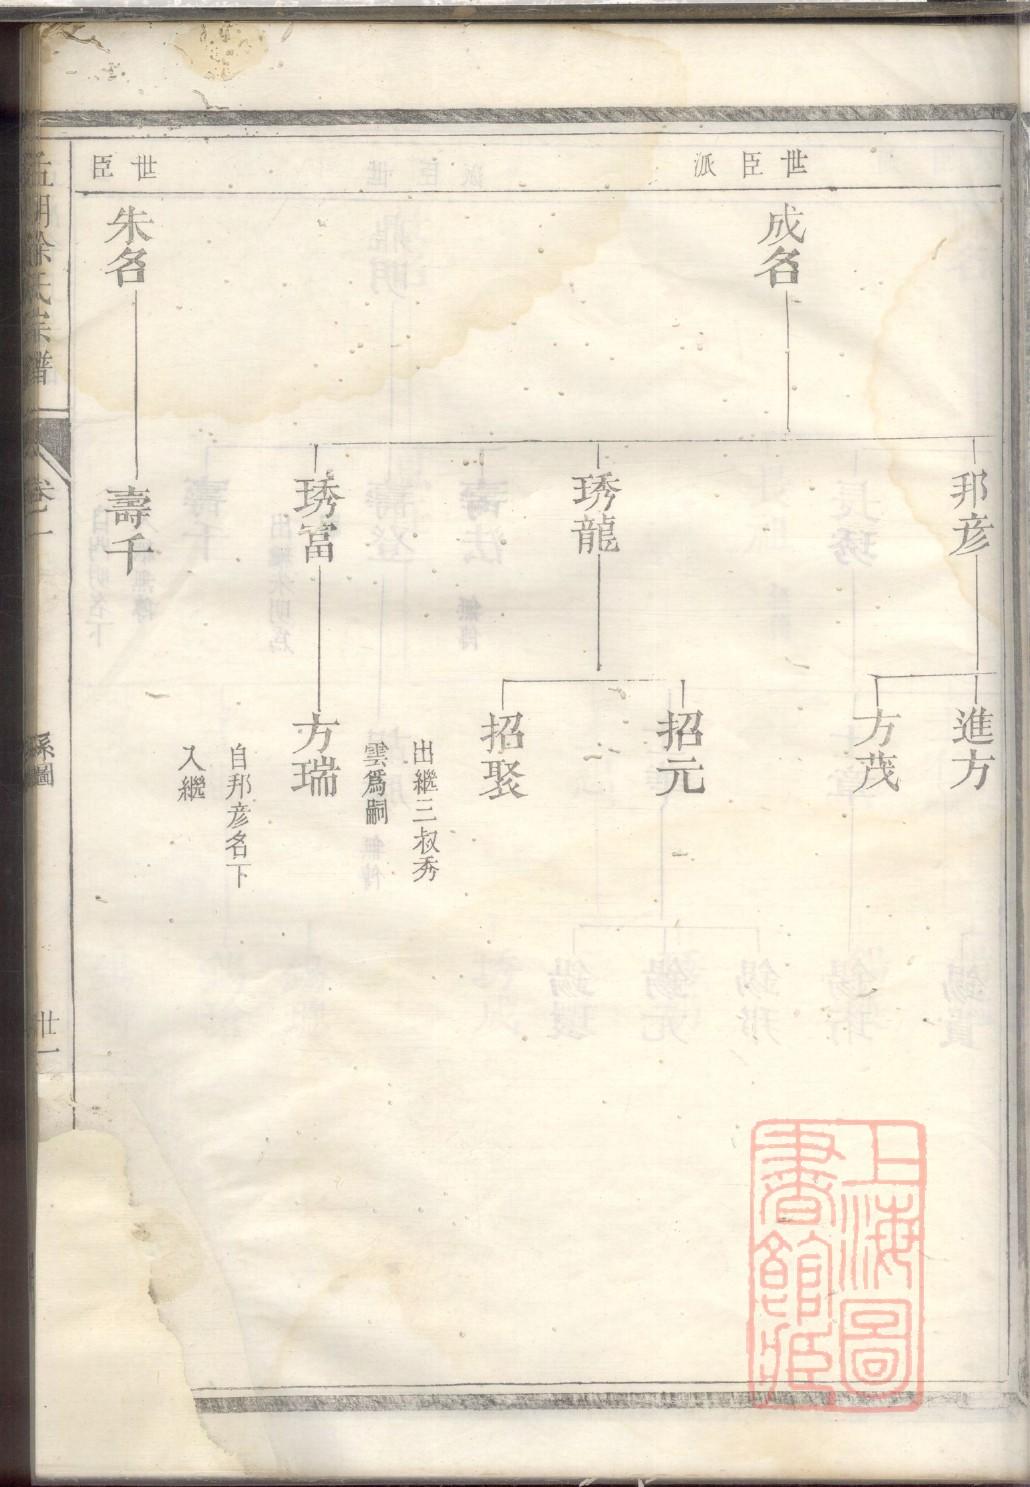 世臣派
成名
邦彦
進方
方茂
琇龍
招元
招聚
出繼三叔秀
雲爲嗣
琇富
方瑞
自邦彦名下
入繼
世臣
朱名
壽千
徐氏宗譜
卷二
系圖
廿一
上海圖
書館藏